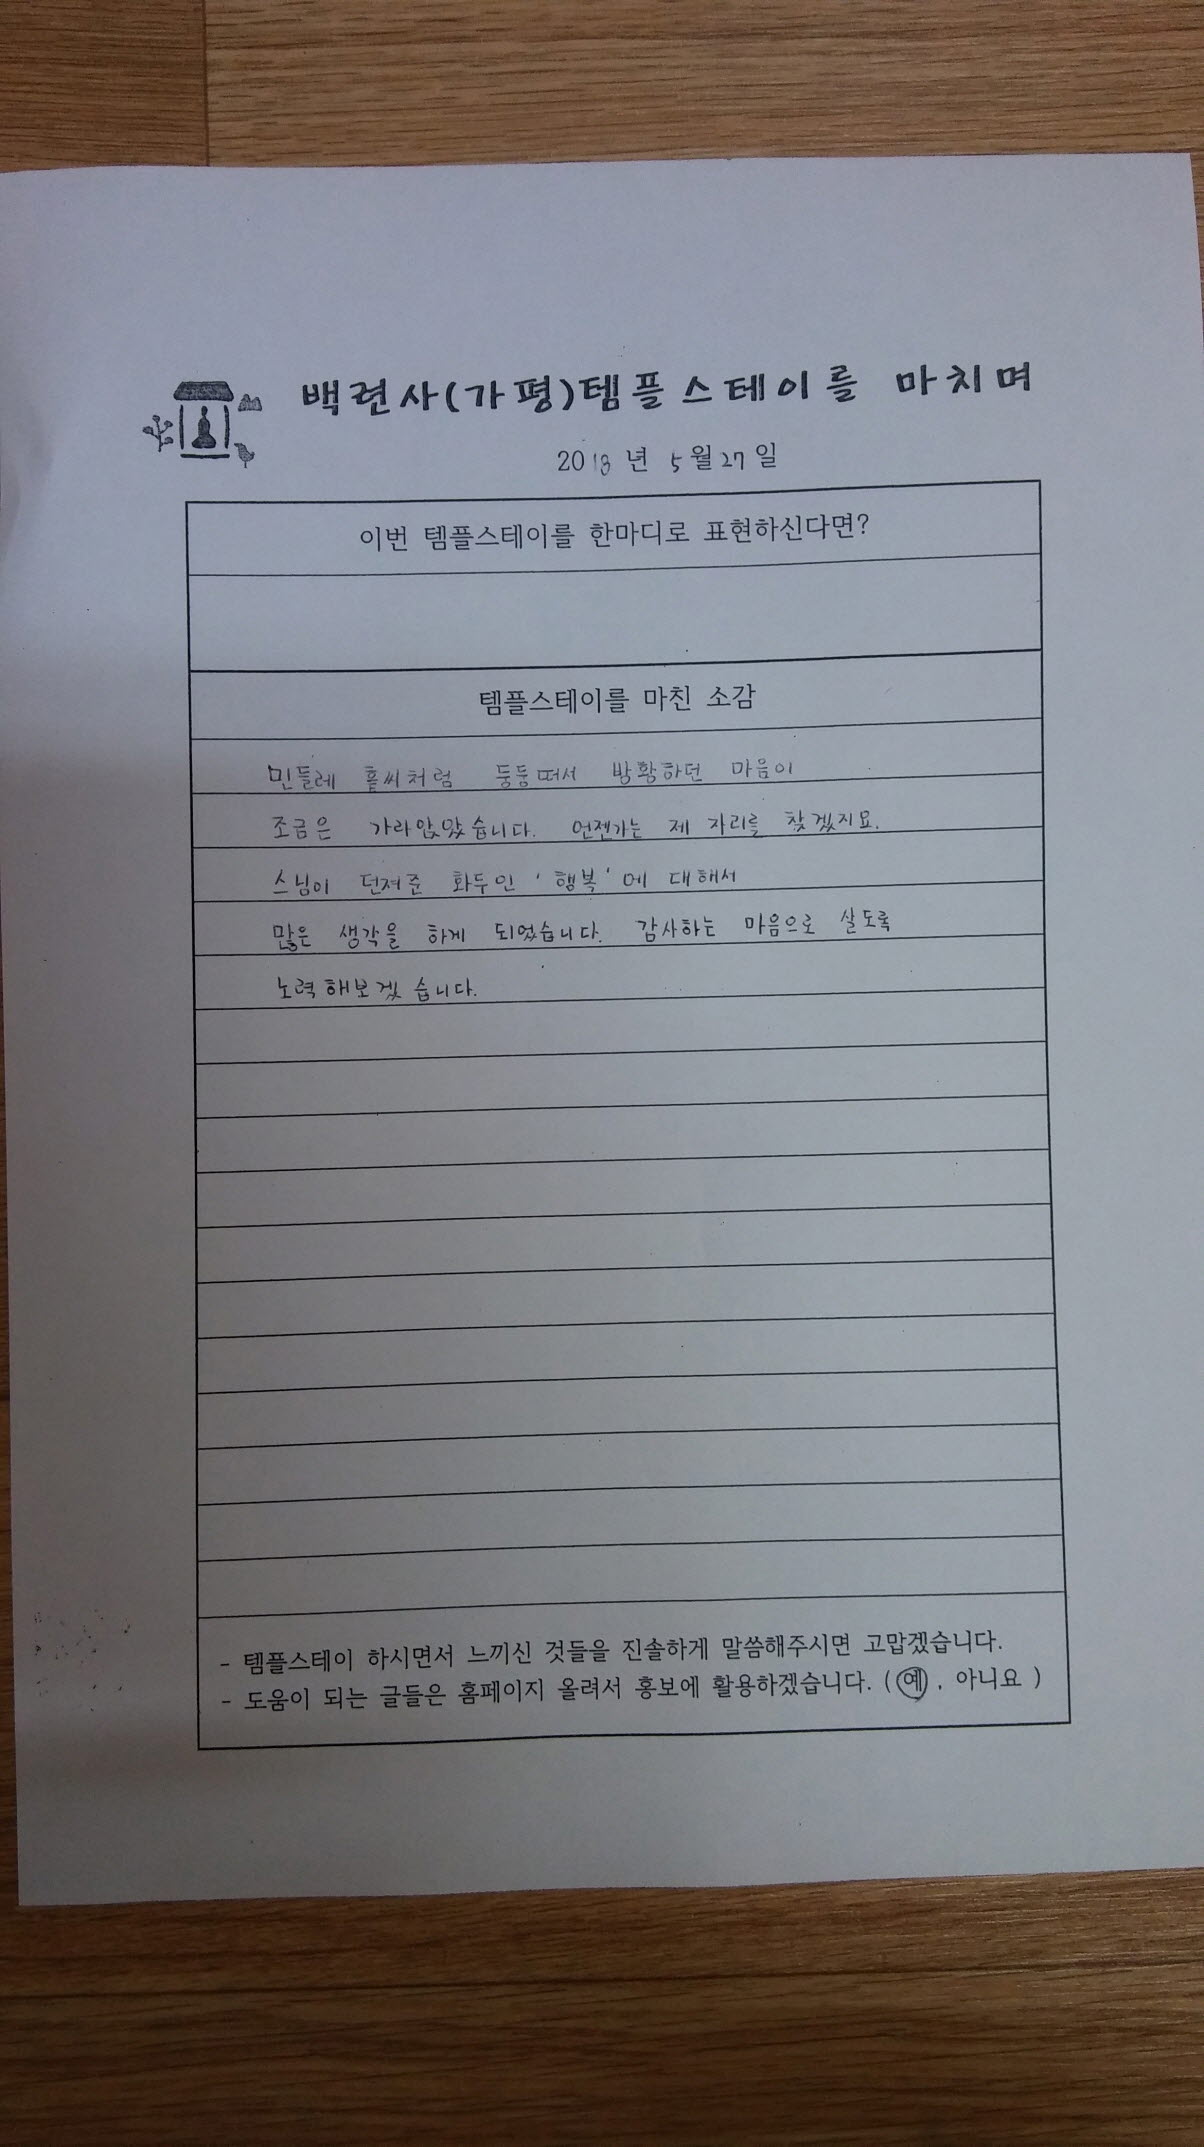 백련사(가평)템플스테이를 마치며
2018 년 5월 27일
이번 템플스테이를 한마디로 표현하신다면?
템플스테이를 마친 소감
민들레 홑씨처럼 둥둥떠서 방황하던 마음이
조금은 가라앉았습니다. 언젠가는 제 자리를 찾겠지요.
스님이 던져준 화두인 '행복'에 대해서
많은 생각을 하게 되었습니다. 감사하는 마음으로 살도록
노력해보겠습니다.
- 템플스테이 하시면서 느끼신 것들을 진솔하게 말씀해주시면 고맙겠습니다.
- 도움이 되는 글들은 홈페이지 올려서 홍보에 활용하겠습니다. ( 예 , 아니요 )